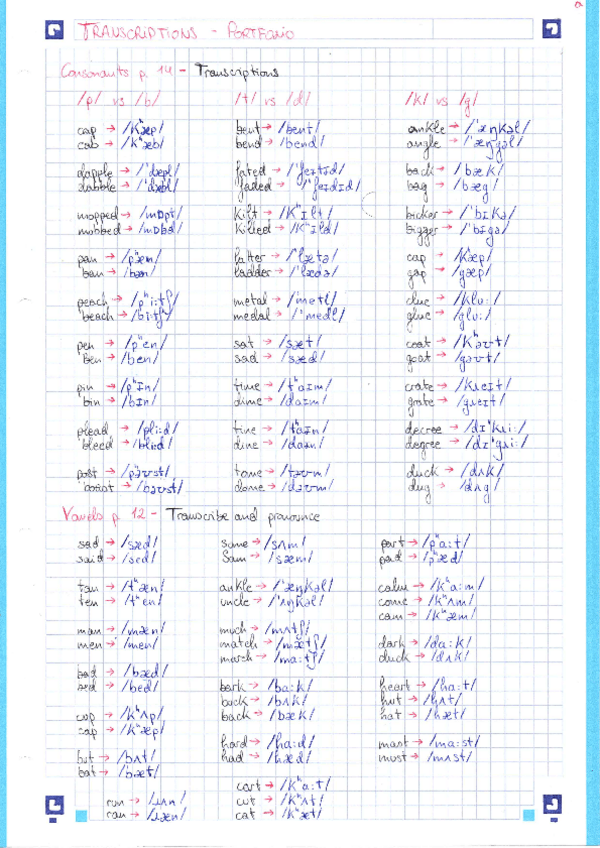 TRANSCRIPTIONS - PORTFOLIO
Consonants p. 14 - Transcriptions
/p/ vs /b/ /t/ vs /d/ /k/ vs /g/
cap → /kʰæp/ bent → /bent/ ankle → /ˈæŋkəl/
cab → /kʰæb/ bend → /bend/ angle → /ˈæŋgəl/
dapple → /ˈdæpl/ fated → /ˈfeɪtɪd/ back → /bæk/
dabble → /ˈdæbl/ faded → /ˈfeɪdɪd/ bag → /bæg/
mopped → /mɒpt/ kilt → /kʰɪlt/ bicker → /ˈbɪkə/
mobbed → /mɒbd/ killed → /kʰɪld/ bigger → /ˈbɪgə/
pan → /pʰæn/ latter → /ˈlætə/ cap → /kʰæp/
ban → /bæn/ ladder → /ˈlædə/ gap → /gæp/
peach → /pʰi:tʃ/ metal → /ˈmetl/ clue → /klu:/
beach → /bi:tʃ/ medal → /ˈmedl/ glue → /glu:/
pen → /pʰen/ sat → /sæt/ coat → /kʰəʊt/
Ben → /ben/ sad → /sæd/ goat → /gəʊt/
pin → /pʰɪn/ time → /tʰaɪm/ crate → /kɹeɪt/
bin → /bɪn/ dime → /daɪm/ grate → /gɹeɪt/
plead → /pli:d/ tine → /tʰaɪn/ decree → /dɪˈkɹi:/
bleed → /bli:d/ dine → /daɪn/ degree → /dɪˈgɹi:/
post → /pʰəʊst/ tome → /təʊm/ duck → /dʌk/
boast → /bəʊst/ dome → /dəʊm/ dug → /dʌg/
Vowels p. 12 - Transcribe and pronounce
sad → /sæd/ some → /sʌm/ part → /pʰɑ:t/
said → /sed/ Sam → /sæm/ pad → /pʰæd/
tan → /tʰæn/ ankle → /ˈæŋkəl/ calm → /kʰɑ:m/
ten → /tʰen/ uncle → /ˈʌŋkəl/ come → /kʰʌm/
cam → /kʰæm/
man → /mæn/ much → /mʌtʃ/
men → /men/ match → /mætʃ/ dark → /dɑ:k/
march → /mɑ:tʃ/ duck → /dʌk/
bad → /bæd/
bed → /bed/ bark → /bɑ:k/ heart → /hɑ:t/
buck → /bʌk/ hut → /hʌt/
cup → /kʰʌp/ back → /bæk/ hat → /hæt/
cap → /kʰæp/
hard → /hɑ:d/ mast → /mɑ:st/
but → /bʌt/ had → /hæd/ must → /mʌst/
bat → /bæt/
cart → /kʰɑ:t/
run → /ɹʌn/ cut → /kʰʌt/
ran → /ɹæn/ cat → /kʰæt/